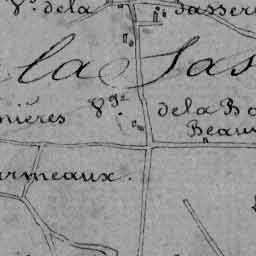 V.e dela Sasser
la Sas
nières Vge dela Ba
Beau
urmeaux.